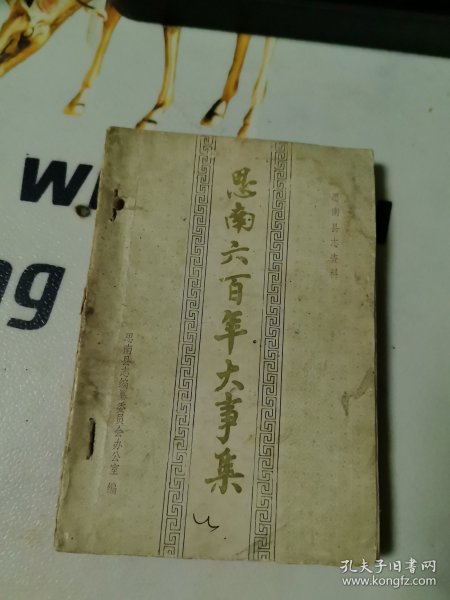 思南县志资料
思南六百年大事集
思南县志编纂委员会办公室 编
w
ng
孔夫子旧书网
www.kongfz.com